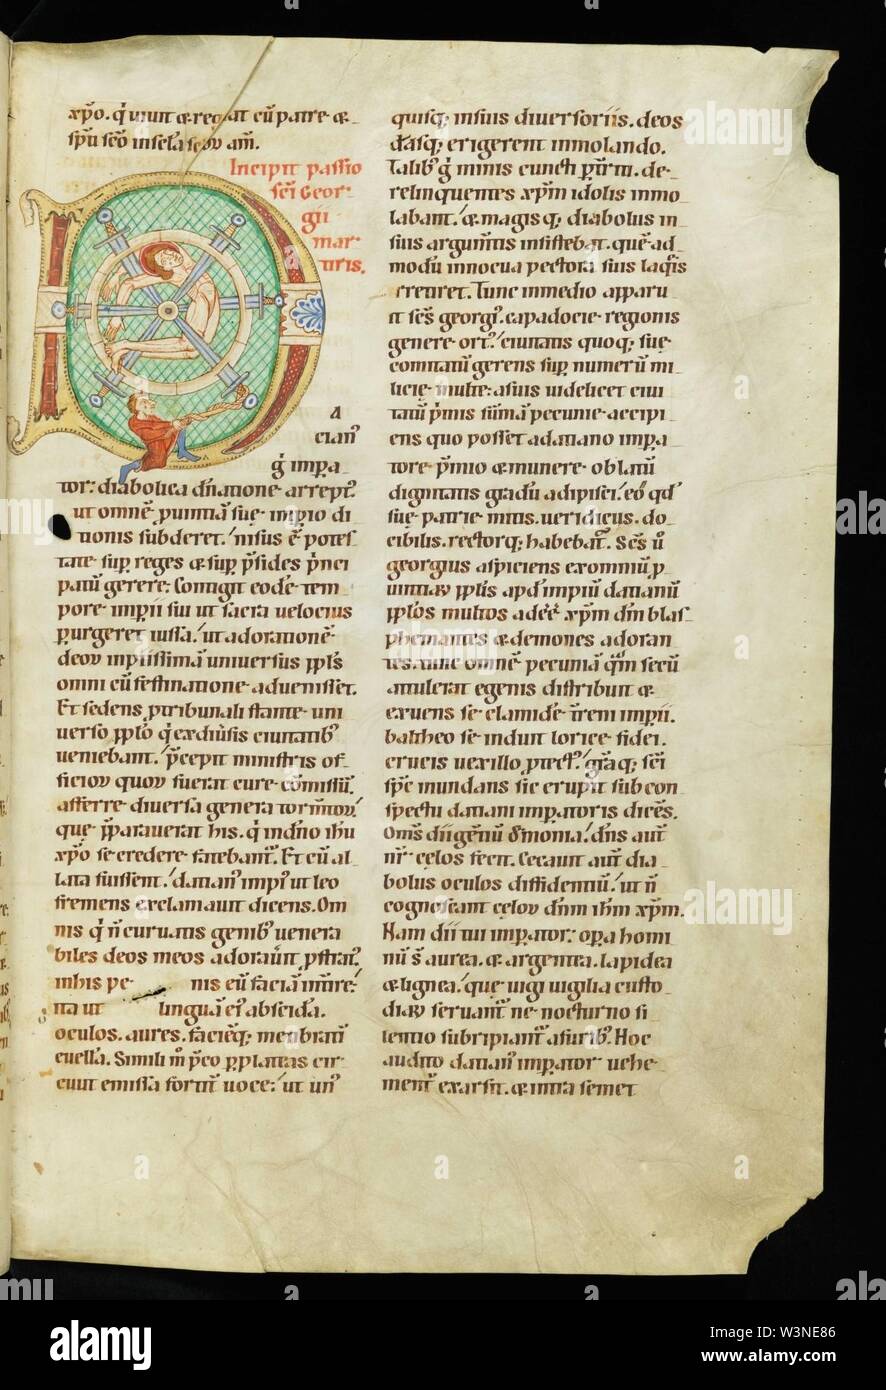 xp̄o. q̇ uiuit & regnat cū patre &
sp̄u sc̄o in sela seɔv am̄.
Incipit passio
sc̄i Geor-
gii
mar-
tiris.
D
A
cianꝰ
g̊ impa
tor: diabolica dn̄atione arreptꝰ
ut omnē ꝓuintiā suę impio di
tionis subderet. nisus ē potes
tate sup reges & sup p̄sides p̄nci
patū gerere. Contigit eodē tem
pore impii sui ut sacra uelocius
purgeret iussa. ut adorationē
deoꝝ inpiissimā uniuersus ppl̄s
omni cū festinatione adueniss&.
Et sedens ꝓ tribunali stante uni
uerso ppl̊o q̇ ex diūsis ciuitatibꝰ
ueniebant. p̄cepit ministris of
ficioꝝ quoꝝ fuerat cure cōmissū.
afferre diuersa genera torm̄toꝝ.
que p̄parauerat his. q̇ in dn̄o ih̄u
xp̄o se credere fatebantꝰ. Et cū al
lata fuissent. datianꝰ imp̄ꝰ ut leo
fremens exclamauit dicens. Om
nis q̇ n̄ curuatis genibꝰ uenera
biles deos meos adoraūit ꝓstratꝰ.
in his pe nis eū faciā int̄ire.
ita ut linguā eiꝰ abscidā.
oculos. aures. faciēq; menbratī
euellā. Simili m̊ p̄co ꝑ plateas cir
cuit emissa fortit̄ uoce. ut unꝰ
quisq; in suis diuersoriis. deos
d̄asq; erigerent inmolando.
Talibꝰ g̊ minis cuncti ꝑt̄riti. de-
relinquentes xp̄m idolis inmo
labant. & magis q; diabolus in
suis argum̄tis insistebat. quēad
modū innocua pectora suis laq̇is
irretiret. Tunc in medio apparu
it sc̄s georgiꝰ. capadocie regionis
genere ortꝰ. ciuitatis quoq; suę
comitatū gerens sup numerū mi
licie multe. a suis uidelicet ciui
tatū p̄mis sum̄ā pecunie accipi
ens quo posset a datiano impa
tore p̄mio & munere oblatū
dignitatis gradū adipisci. eo qđ
suę patrie mitis. ueridicus. do
cibilis. rectorq; habebat̄. Sc̄s ū
georgius aspiciens ex omniū ꝓ
uintiaꝝ ppl̄is apđ impiū datianū
ppl̊os multos adeē xp̄m dn̄m blas
phemantes & demones adoran
tes. tunc omnē pecuniā q̄m secū
attulerat egenis distribuit &
exuens se clamidē t̄reni impii.
baltheo se induit lorice fidei.
crucis uexillo ꝓtectꝰ. gr̄aq; sc̄i
sp̄c mundans sic erupit sub con
spectu datiani impatoris dicēs.
Om̄s dii gentiū dmonia. dn̄s aut̄
nr̄ cęlos fecit. Cecauit aut̄ dia
bolus oculos diffidentiū. ut n̄
cognoscant celoꝝ dn̄m ih̄m xp̄m.
Nam dii tui impator. opa homi
nū s̄. aurea. & argentea. lapidea
& lignea. que uigi uigilia custo
diaꝝ seruant̄ ne nocturno si
lentio subripiant̄ a furibꝰ. Hoc
audito datianꝰ impator uehe
ment̄ exarsit. & intra semet
alamy
a
W3NE86
www.alamy.com